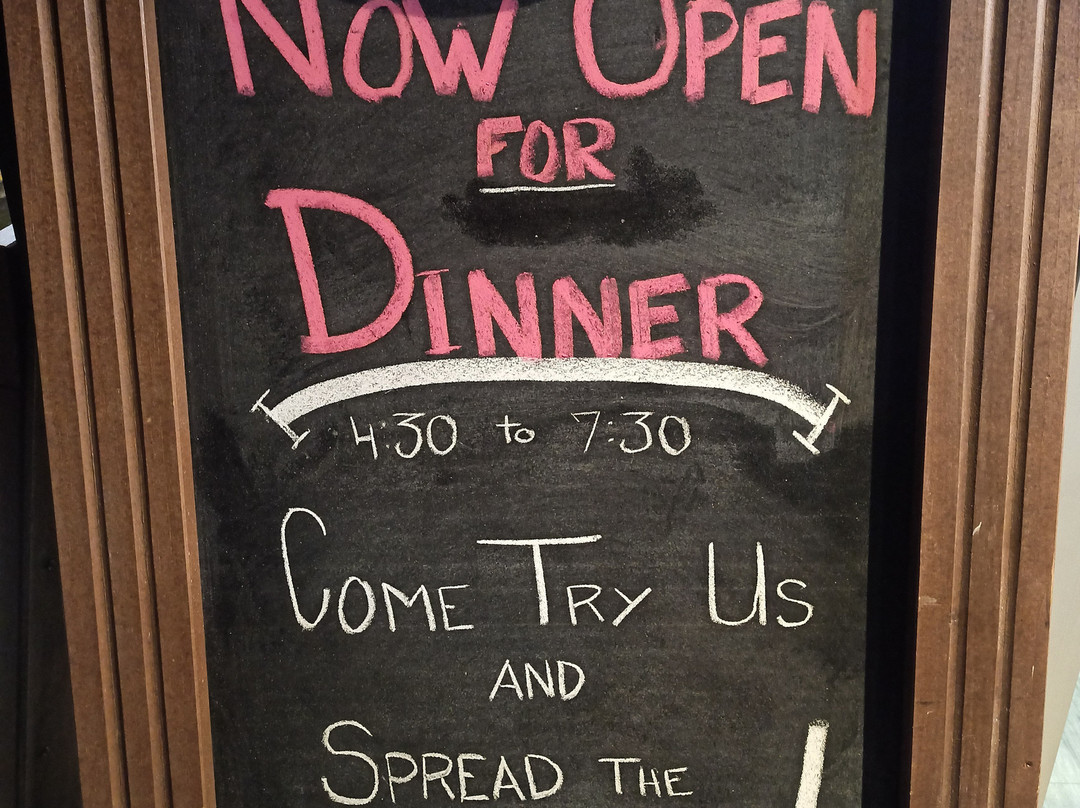 NOW OPEN
FOR
DINNER
4:30 to 7:30
COME TRY US
AND
SPREAD THE
!